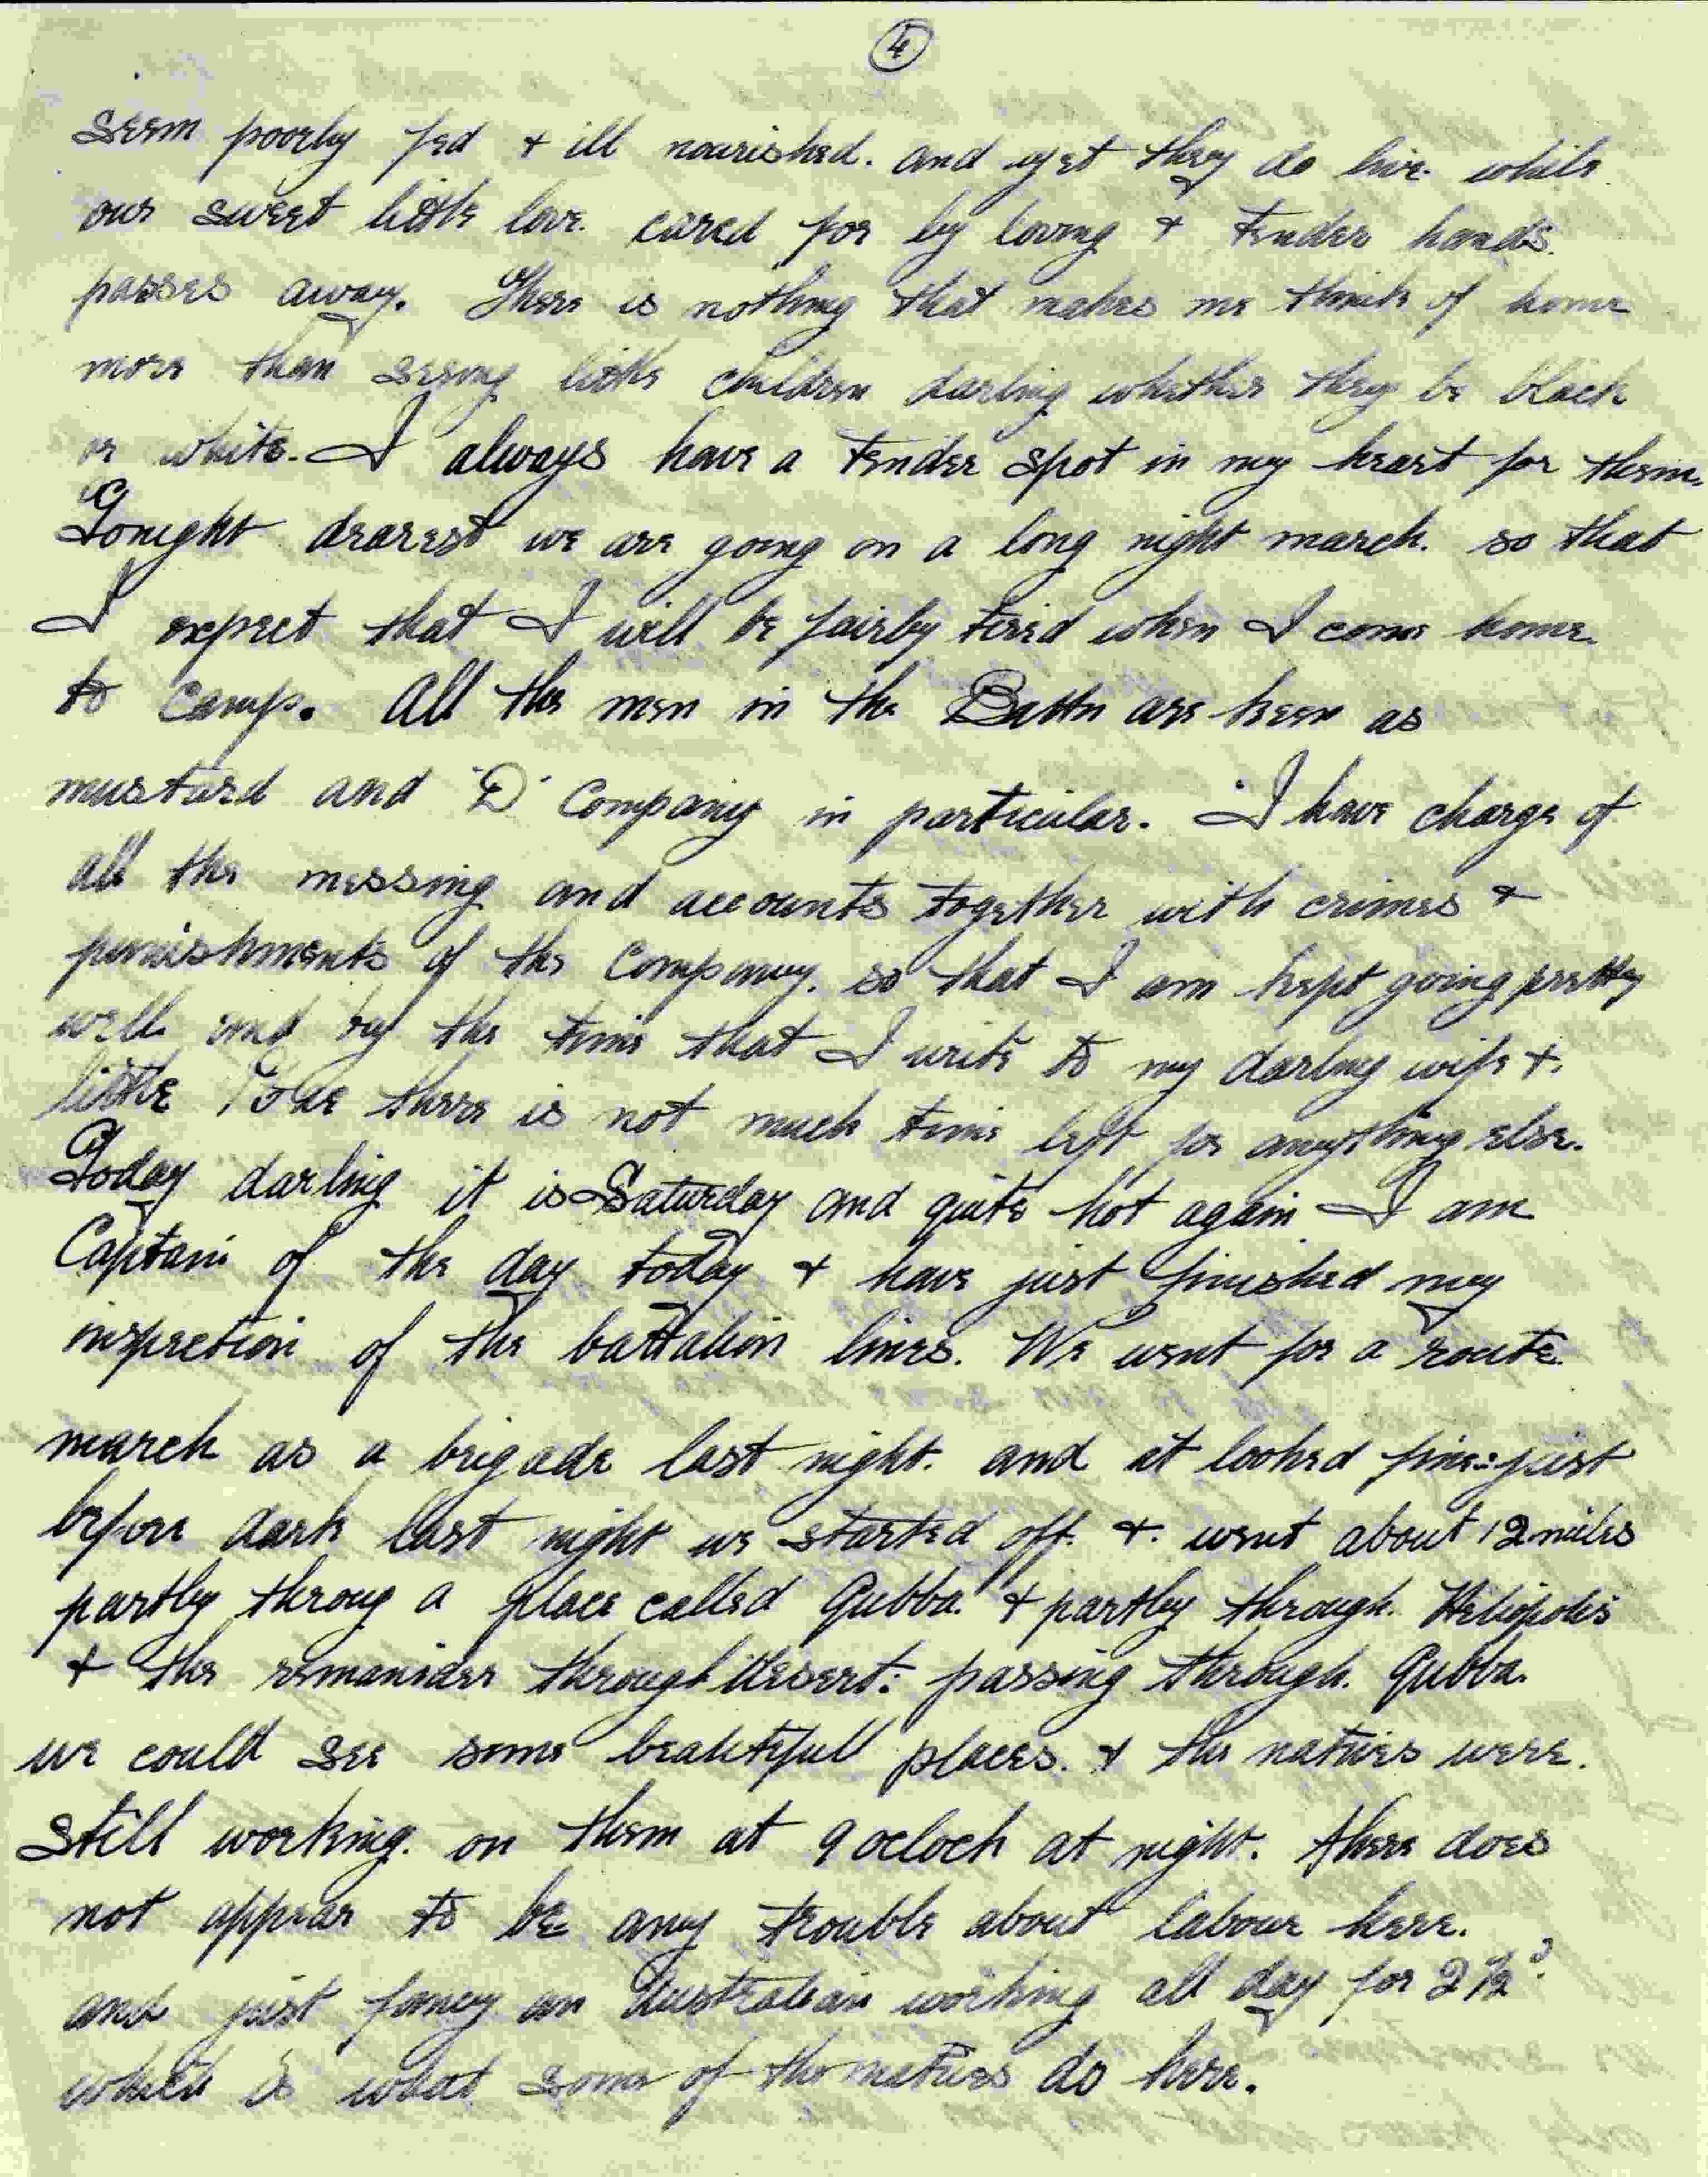 4
seem poorly fed & ill nourished. and yet they do live. while
our sweet little love. cared for by loving & tender hands.
passes away. There is nothing that makes me think of home
more than seeing little children darling whether they be black
or white. I always have a tender spot in my heart for them.
Tonight dearest we are going on a long night march. so that
I expect that I will be fairly tired when I come home.
to camp. All the men in the Battn are keen as
mustard and "D" Company in particular. I have charge of
all the messing and accounts together with crimes &
punishments of the Company. so that I am kept going pretty
well and by the time that I write to my darling wife &
little there is not much time left for anything else.
Today darling it is Saturday and quite hot again I am
Captain of the day today & have just finished my
inspection of the battalion lines. We went for a route
march as a brigade last night. and it looked fine: just
before dark last night we started off. & went about 12 miles
partly throug a place called Qubba. & partly through. Heliopolis
& the remainder through desert: passing through. Qubba.
we could see some beautifull places. & the natives were.
still working. on them at 9 oclock at night. there does
not appear to be any trouble about labour here.
and just fancy an Australian working all day for 2/1/2
which is what some of the natives do here.